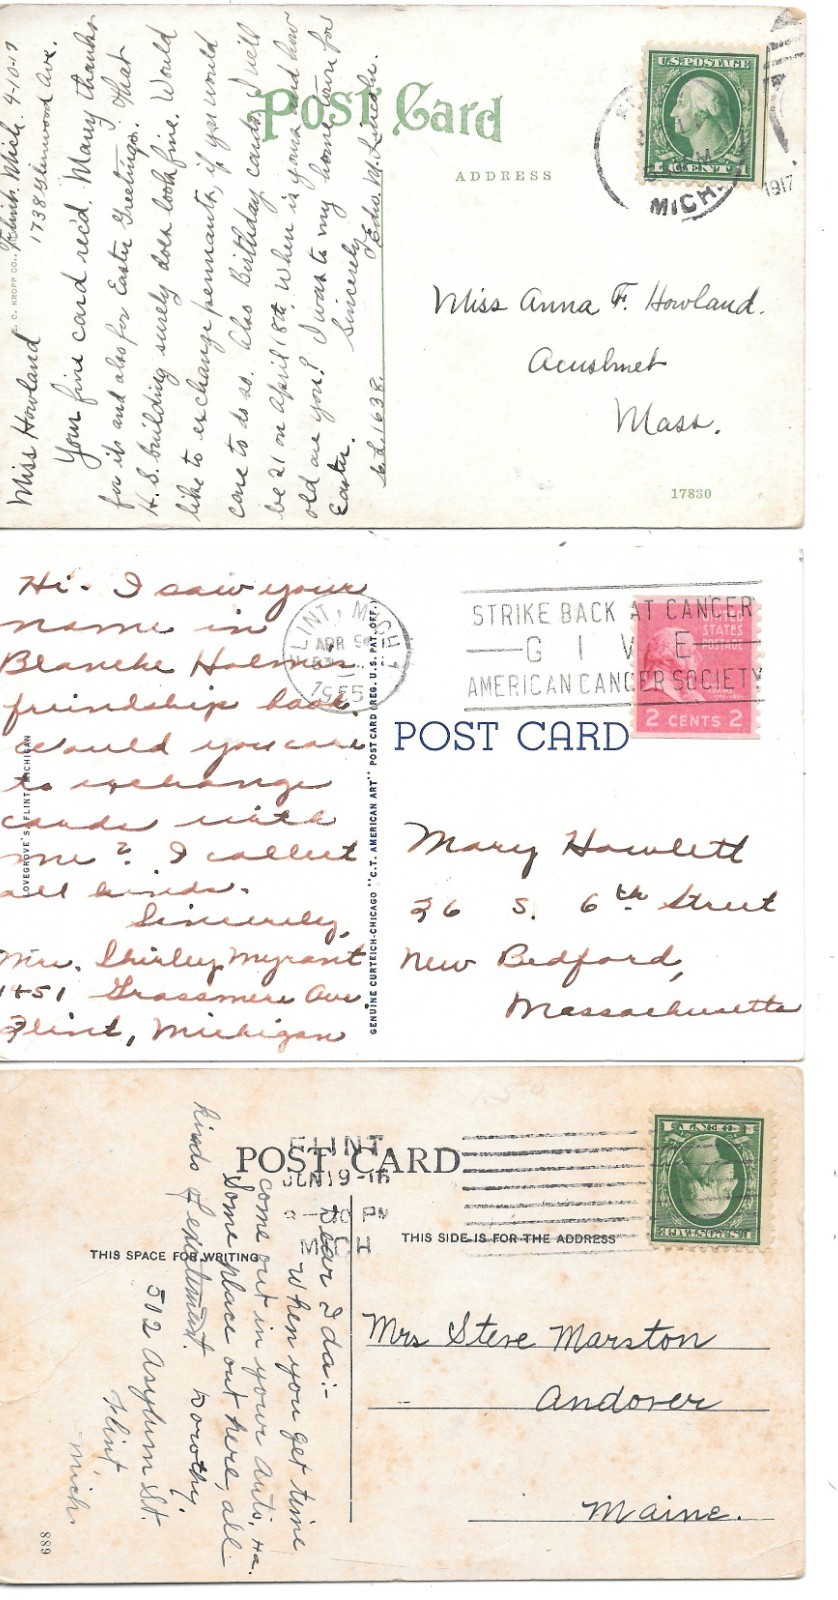 Post Card
ADDRESS
U.S. POSTAGE
1 CENT 1
MICH.
1917
E. C. KROPP CO.
Flint, Mich. 4-10-17
1738 Glenwood Ave.
Miss Howland
Your fine card rec'd. Many thanks
for it and also for Easter Greetings. That
H.S. building surely does look fine. Would
like to exchange pennants, if you would
care to do so. Also Birthday cards. I will
be 21 on April 18th. When is yours and how
old are you? I was to my home town for
Easter. Sincerely
Edw. M. Lincoln.
1638.
Miss Anna F. Howland.
Acushnet
Mass.
17830
Hi - I saw your
name in
Blanche Holmes
friendship book.
Would you care
to exchange
cards with
me? I collect
all kinds.
Sincerely,
Mrs. Shirley Myrant
1451 Grassmere Ave.
Flint, Michigan
LOVEGROVE'S, FLINT, MICHIGAN
FLINT, MICH
APR
1955
GENUINE CURTEICH-CHICAGO "C.T. AMERICAN ART" POST CARD (REG. U.S. PAT. OFF.)
STRIKE BACK AT CANCER
GIVE
AMERICAN CANCER SOCIETY
UNITED
STATES
POSTAGE
2 CENTS 2
POST CARD
Mary Howlett
26 S. 6th Street
New Bedford,
Massachusetts
POST CARD
FLINT
JUN 19
PM
MICH
THIS SPACE FOR WRITING
THIS SIDE IS FOR THE ADDRESS
U.S. POSTAGE
1 CENT 1
Dear Ida:-
When you get time
come out in your auto, Ha.
Some place out here, all
kinds of excitement. Dorothy.
512 Asylum St.
Flint
Mich.
Mrs Steve Marston
Andover
Maine.
688